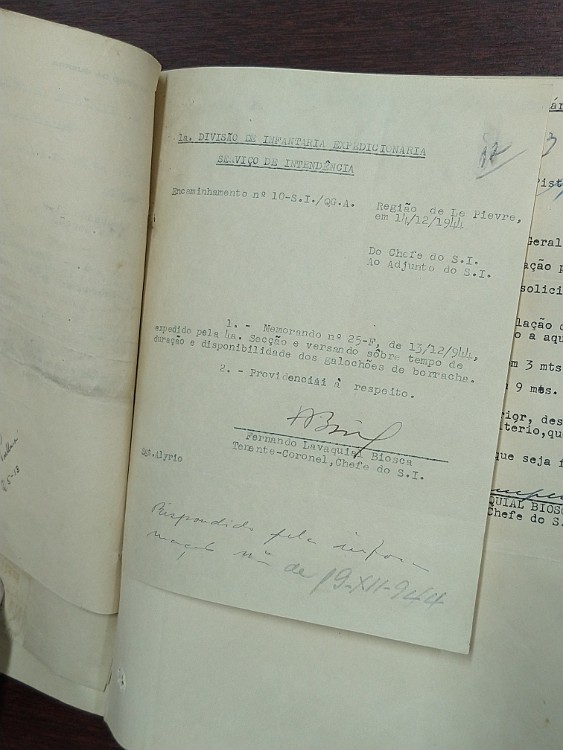 1a. DIVISÃO DE INFANTARIA EXPEDICIONARIA
SERVIÇO DE INTENDÊNCIA
Encaminhamento nº 10-S.I./QG.A.
Região de Le Pievre,
em 14/12/1944
Do Chefe do S.I.
Ao Adjunto do S.I.
1. - Memorando nº 25-F, de 13/12/944,
expedido pela 4a. Secção e versando sôbre tempo de
duração e disponibilidade dos galochões de borracha.
2. - Providenciai à respeito.
Fernando Lavaquial Biosca
Tenente-Coronel, Chefe do S.I.
Sgt.Alyrio
Respondido pela infor
mação nº de 19-XII-944
3
Geral
ação p
solici
lação d
o a aqu
m 3 mts
9 mes.
rior, des
tério,qu
que seja i
QUIAL BIOSC
Chefe do S.